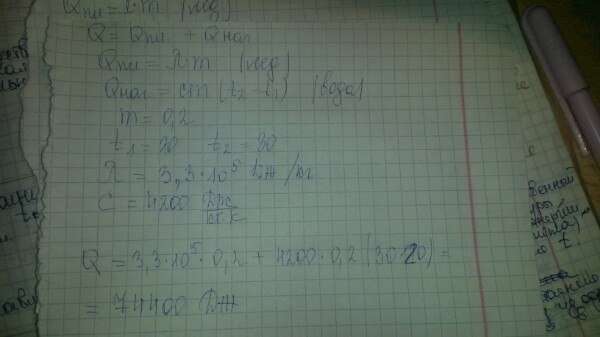 Qпл = λ·m (лед)
Q = Qпл + Qнаг
Qпл = λm (лед)
Qнаг = cm (t₂ - t₁) (вода)
m = 0,2
t₁ = 20 t₂ = 30
λ = 3,3·10⁵ Дж/кг
C = 4200 Дж/кг К
Q = 3,3·10⁵·0,2 + 4200·0,2 (30-20) =
= 74400 Дж